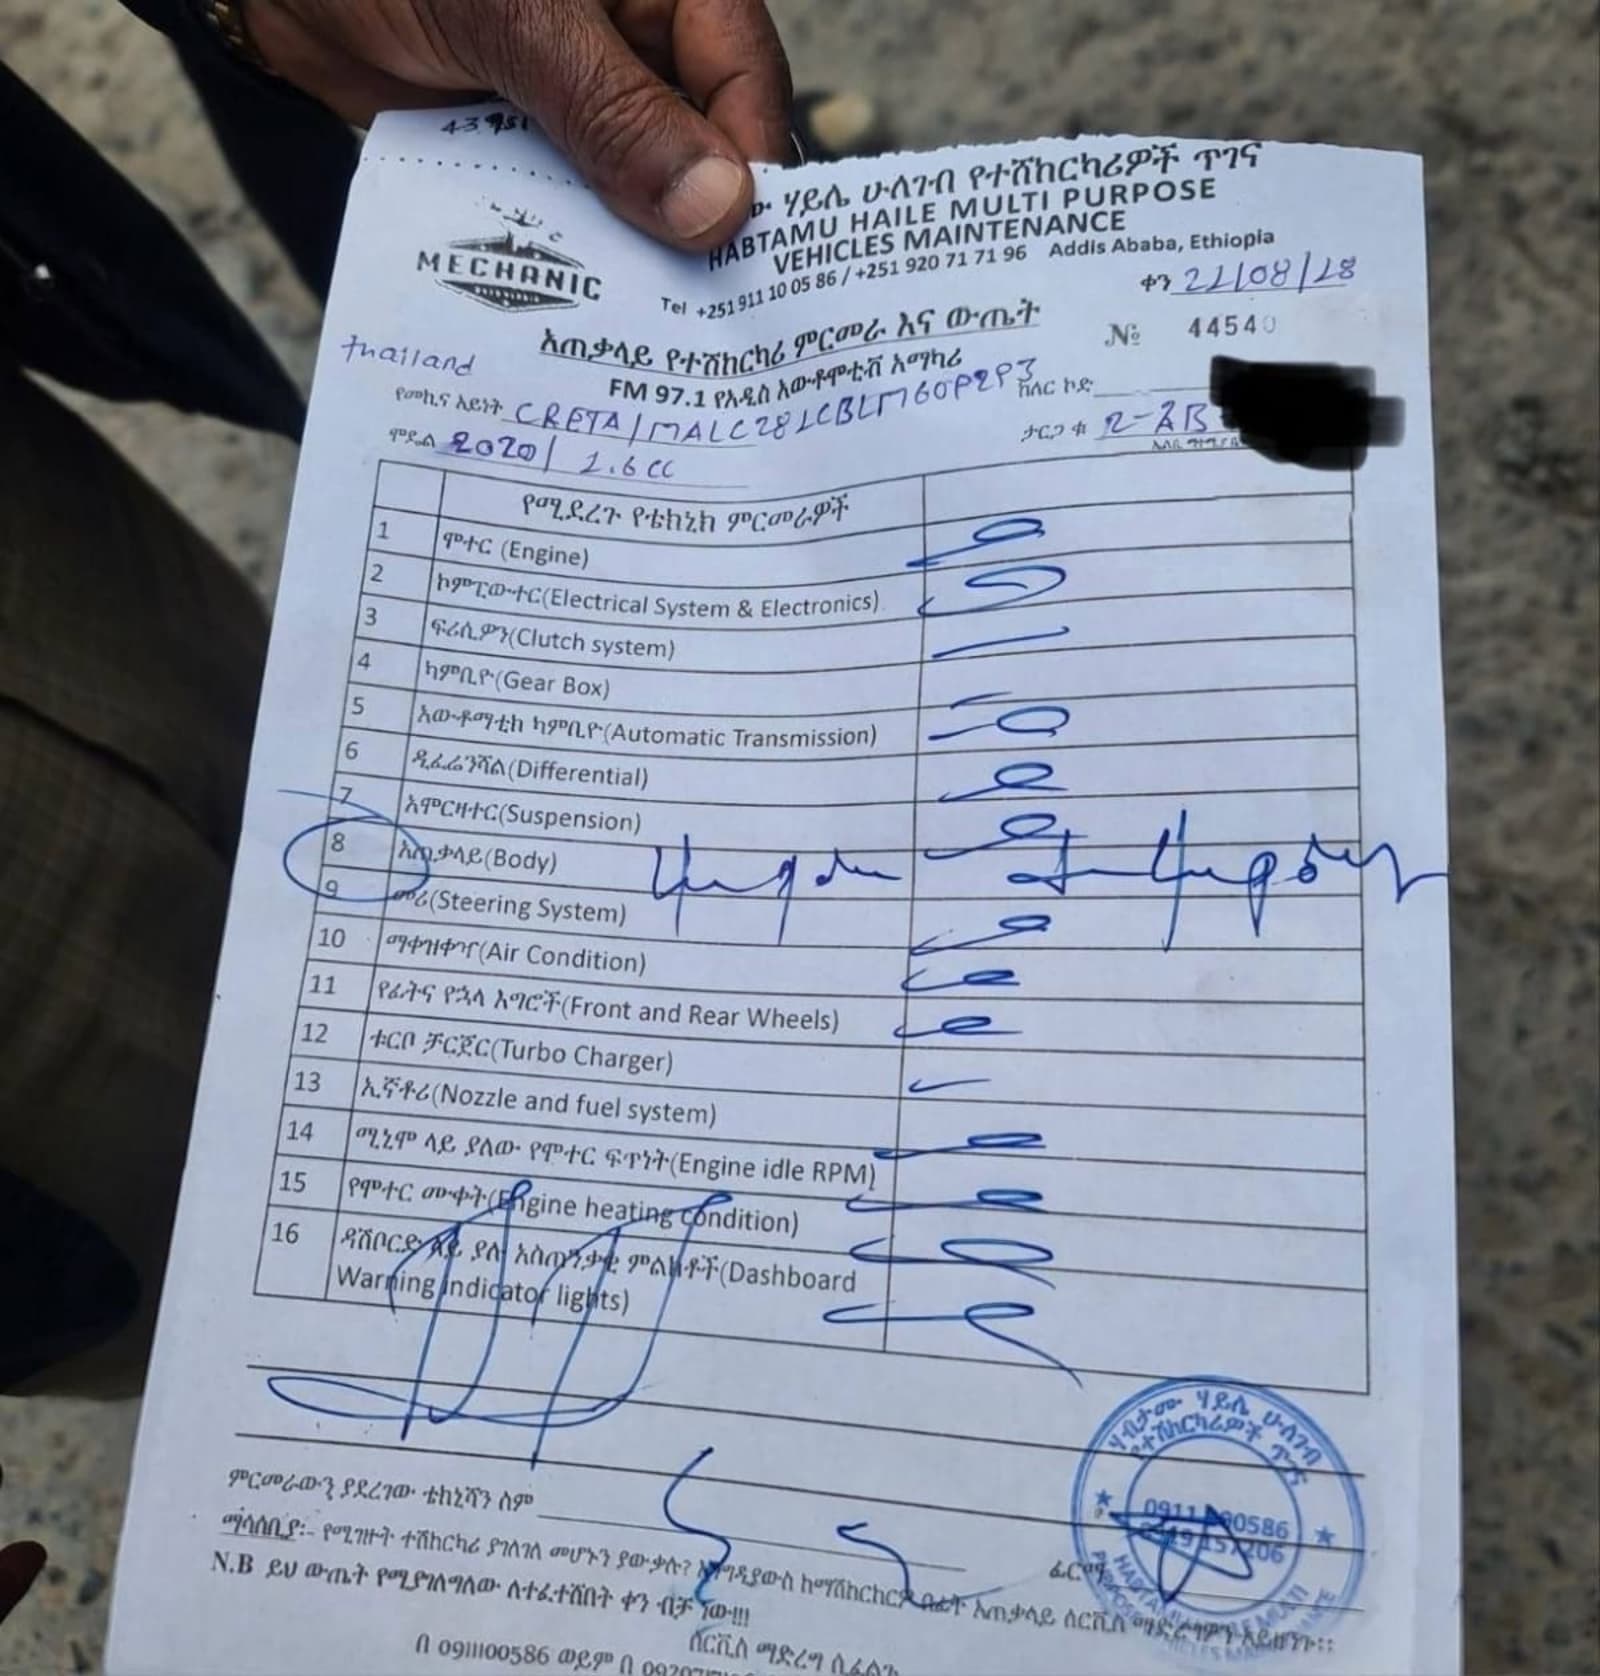 ሃይሌ ሁለገብ የተሽከርካሪዎች ጥገና
HABTAMU HAILE MULTI PURPOSE
VEHICLES MAINTENANCE
MECHANIC
Tel +251 911 10 05 86 / +251 920 71 71 96 Addis Ababa, Ethiopia
ቀን 21/08/18
አጠቃላይ የተሽከርካሪ ምርመራ እና ውጤት
№ 44540
thailand
FM 97.1 የአዲስ አውቶሞቲቭ አማካሪ
የመኪና አይነት CRETA/MALC281CBLM60P2P3 ከለር ኮድ
ሞዴል 2020/ 1.6cc
ታርጋ ቁ 2-AB
የሚደረጉ የቴክኒክ ምርመራዎች
1 ሞተር (Engine)
2 ኮምፒውተር(Electrical System & Electronics)
3 ፍሪሲዎን(Clutch system)
4 ካምቢዮ(Gear Box)
5 አውቶማቲክ ካምቢዮ(Automatic Transmission)
6 ዲፈሬንሻል(Differential)
7 አሞርዛተር(Suspension)
8 አጠቃላይ(Body)
9 መሪ(Steering System)
10 ማቀዝቀዣ(Air Condition)
11 የፊትና የኋላ እግሮች(Front and Rear Wheels)
12 ቱርቦ ቻርጀር(Turbo Charger)
13 ኢኛቶሪ(Nozzle and fuel system)
14 ሚኒሞ ላይ ያለው የሞተር ፍጥነት(Engine idle RPM)
15 የሞተር ሙቀት(Engine heating condition)
16 ዳሽቦርድ ላይ ያሉ አስጠንቃቂ ምልክቶች(Dashboard
Warning indicator lights)
ምርመራውን ያደረገው ቴክኒሻን ስም
ፊርማ
ማሳሰቢያ:- የሚገዙት ተሽከርካሪ ያገለገለ መሆኑን ያውቃሉ? እንግዲያውስ ከማሽከርከርዎ በፊት አጠቃላይ ሰርቪስ ማድረግዎን አይዘንጉ፡፡
N.B ይህ ውጤት የሚያገለግለው ለተፈተሸበት ቀን ብቻ ነው!!!
ሰርቪስ ማድረግ ሲፈልጉ
በ 0911100586 ወይም በ
ሃብታሙ ሃይሌ ሁለገብ
የተሽከርካሪዎች ጥገና